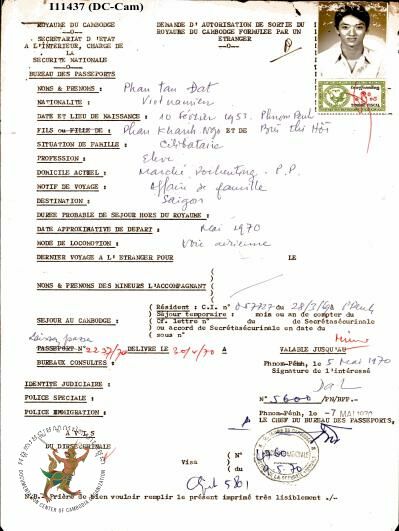 I11437 (DC-Cam)
ROYAUME DU CAMBODGE
DEMANDE D'AUTORISATION DE SORTIE DU
ROYAUME DU CAMBODGE FORMULEE PAR UN
ETRANGER
SECRETARIAT D'ETAT
A L'INTERIEUR, CHARGE DE
LA
SECURITE NATIONALE
BUREAU DES PASSEPORTS
NOMS & PRENOMS : Phan tan Dat
NATIONALITE : Vietnamien
DATE ET LIEU DE NAISSANCE : 10 février 1953. Phnom Penh
FILS ou FILLE DE : Phan Khanh Ngo ET DE Bui thi Hôi
SITUATION DE FAMILLE : Célibataire
PROFESSION : Elève
DOMICILE ACTUEL : Marché Pochentong. P.P.
MOTIF DE VOYAGE : Affaire de famille
DESTINATION : Saigon
DUREE PROBABLE DE SEJOUR HORS DU ROYAUME :
DATE APPROXIMATIVE DE DEPART : Mai 1970
MODE DE LOCOMOTION : Voie aérienne
DERNIER VOYAGE A L'ETRANGER POUR LE
NOMS & PRENOMS DES MINEURS L'ACCOMPAGNANT
Résident : C.I. n° ou
SEJOUR AU CAMBODGE :
Séjour temporaire : mois ou an de compter du
Cf. lettre n° du de Secrétasécurinale
ou accord de Secrétasécurinale en date du
sous n°
Laissez passer
PASSEPORT N° 2237/70 DELIVRE LE 30/4/70 A VALABLE JUSQU'AU
BUREAUX CONSULTES : Phnom-Penh, le 5 mai 1970
Signature de l'intéressé
IDENTITE JUDICIAIRE :
Dat
POLICE SPECIALE : N° 5600 /PN/BPP.-
POLICE IMMIGRATION : Phnom-Pénh, le -7 MAI 1970
LE CHEF DU BUREAU DES PASSEPORTS,
AVIS
DU DIRSECURINALE
Visa (N°
(du
DOCUMENTATION CENTER OF CAMBODIA
N.B.- Prière de bien vouloir remplir le présent imprimé très lisiblement ./-